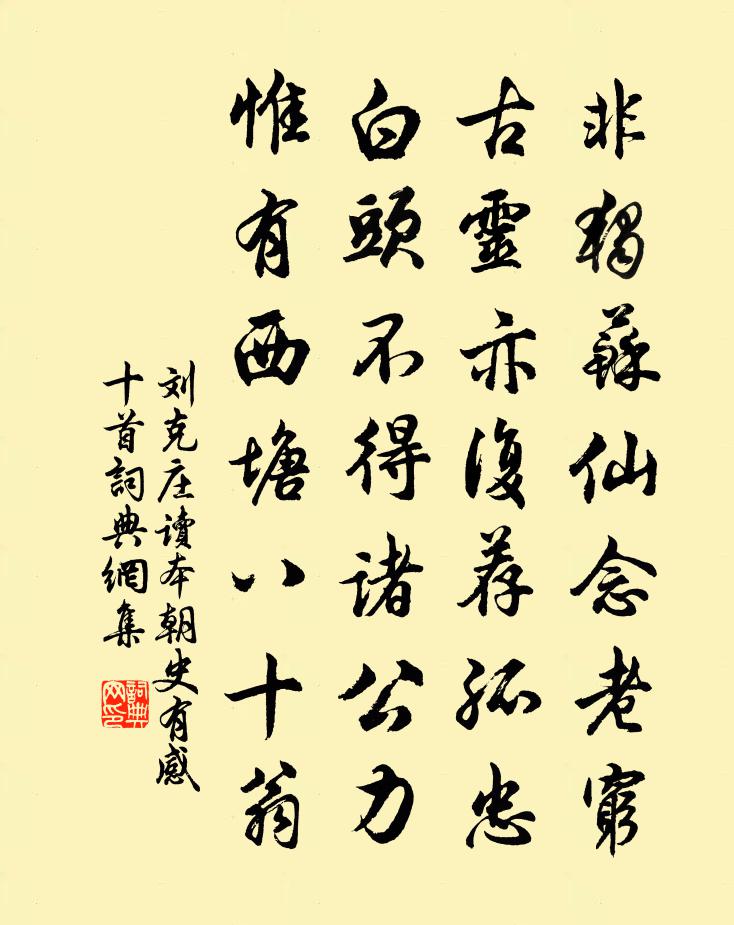 非獨蘇仙念老窮
古靈亦復荐孤忠
白頭不得諸公力
惟有西塘八十翁
刘克庄讀本朝史有感
十首詞典網集
詞典
网印